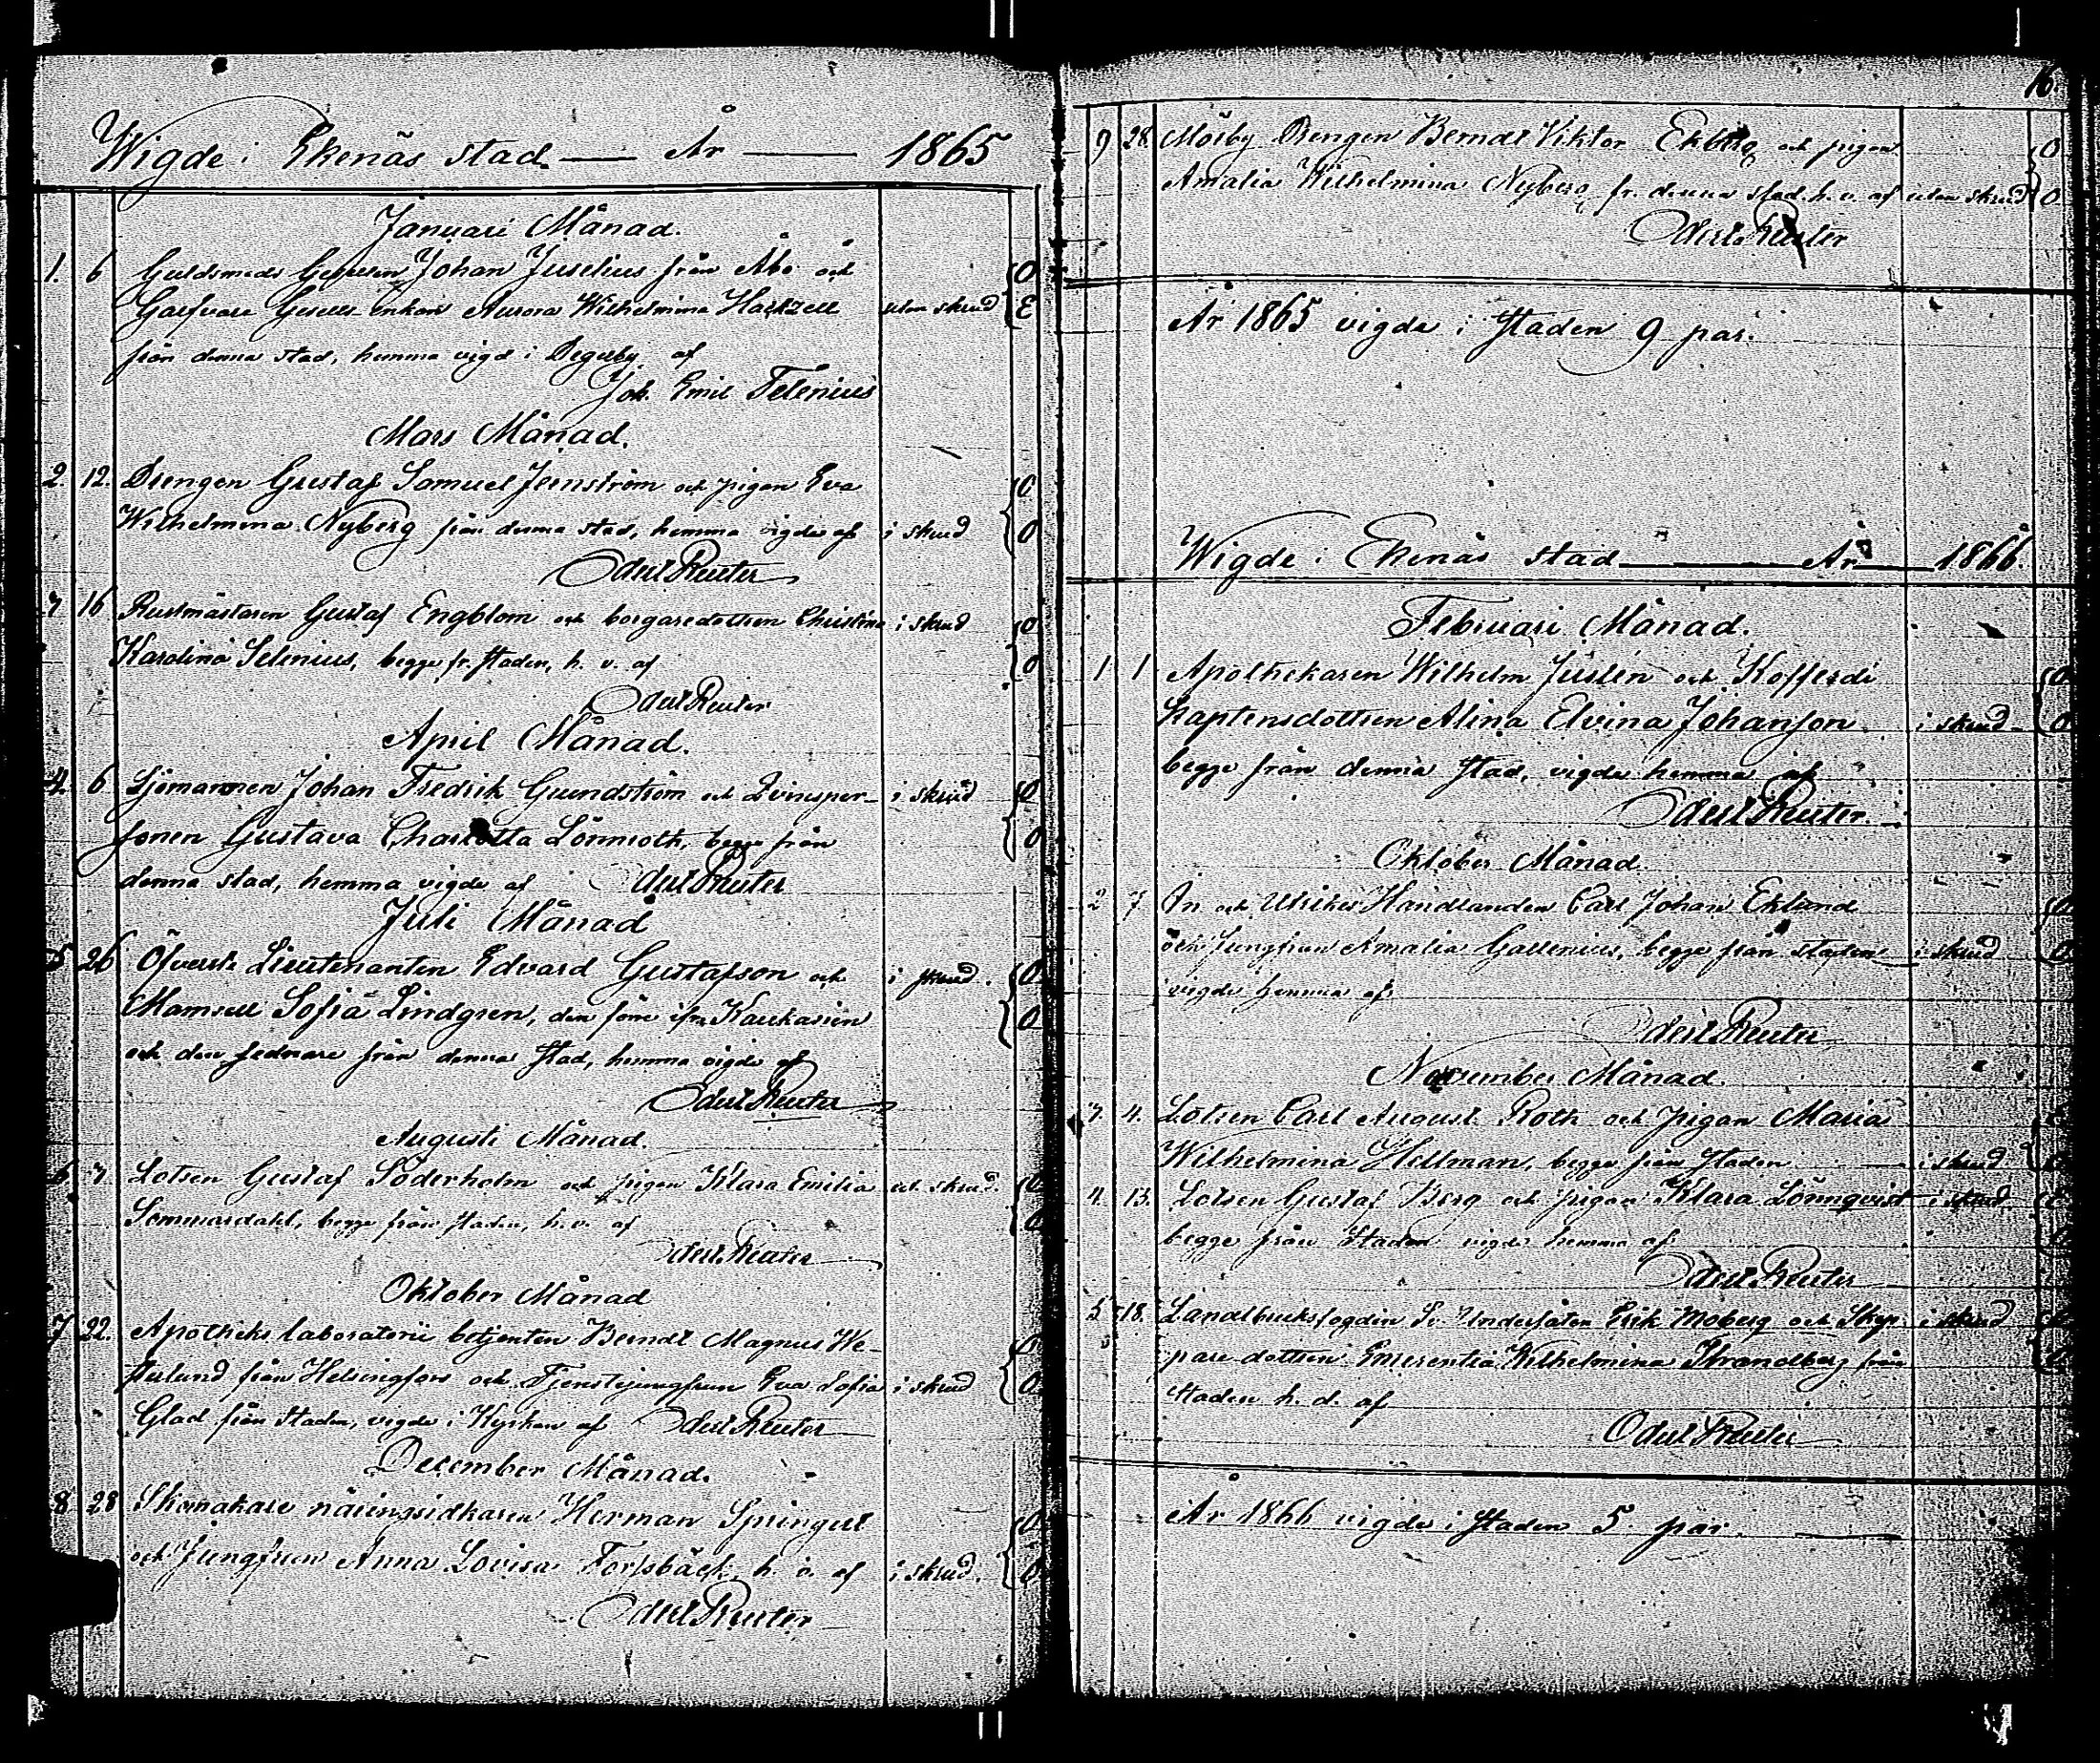 Wigde i Ekenäs stad År 1865
Januari Månad.
1. 6 Guldsmeds Gesellen Johan Juselius från Åbo och O
Garfvare Gesells enkan Aurora Wilhelmina Hartzell utan skrud E
från denna stad, hemma vigd i Degerby af
Joh. Emil Telenius
Mars Månad.
2. 12. Drengen Gustaf Samuel Jernström och pigan Eva O
Wilhelmina Nyberg från denna stad, hemma vigde af i skrud O
Odert Reuter
3 16 Rustmästaren Gustaf Engblom och borgaredottren Christina i skrud O
Karolina Selenius, begge fr. staden, h. v. af O
Odert Reuter
April Månad.
4. 6 Sjömannen Johan Fredrik Grundström och Qvinsper- i skrud O
sonen Gustava Charlotta Lönnroth, begge från O
denna stad, hemma vigde af Odert Reuter
Juli Månad
5 26 Öfverste Lieutenanten Edvard Gustafson och i skrud. O
Mamsell Sofia Lindgren, den förre ifr. Kaukasien O
och den sednare från denna stad, hemma vigde af
Odert Reuter
Augusti Månad.
6. 7 Lotsen Gustaf Söderholm och pigan Klara Emilia ut. skrud. O
Sommardahl, begge från staden, h. v. af O
Odert Reuter
Oktober Månad
7. 22. Apotheks laboratorii betjenten Berndt Magnus We- O
sterlund från Helsingfors och Tjenstejungfrun Eva Sofia i skrud O
Glad från staden, vigde i Kyrkan af Odert Reuter
December Månad.
8 28 Skomakare näringsidkaren Herman Springert O
och Jungfrun Anna Lovisa Forssbäck, h. v. af i skrud. O
Odert Reuter
16.
9 28. Mörby Drengen Berndt Viktor Ekberg och pigan O
Amalia Wilhelmina Nyberg fr. denna stad. h. v. af utan skrud O
Odert Reuter
År 1865 vigde i staden 9 par.
Wigde i Ekenäs stad År 1866.
Februari Månad.
1 1 Apothekaren Wilhelm Juslén och Kofferdi O
kaptensdottren Alina Elvina Johanson i skrud. O
begge från denna stad, vigde hemma af
Odert Reuter
Oktober Månad.
2 7 In och Utrikes Handlanden Carl Johan Eklund O
och Jungfrun Amalia Gallenius, begge från staden i skrud O
vigde hemma af
Odert Reuter
November Månad.
3 4. Lotsen Carl August Roth och pigan Maria
Wilhelmina Hellman, begge från staden i skrud
4. 13. Lotsen Gustaf Berg och pigan Klara Lönnqvist i skrud
begge från Staden vigde hemma af
Odert Reuter
5 18. Landtbruksfogden Sv. Undersåten Erik Moberg och Skep i skrud
pare dottren Emerentia Wilhelmina Strandberg från
Staden h. v. af
Odert Reuter
År 1866 vigde i staden 5 par.